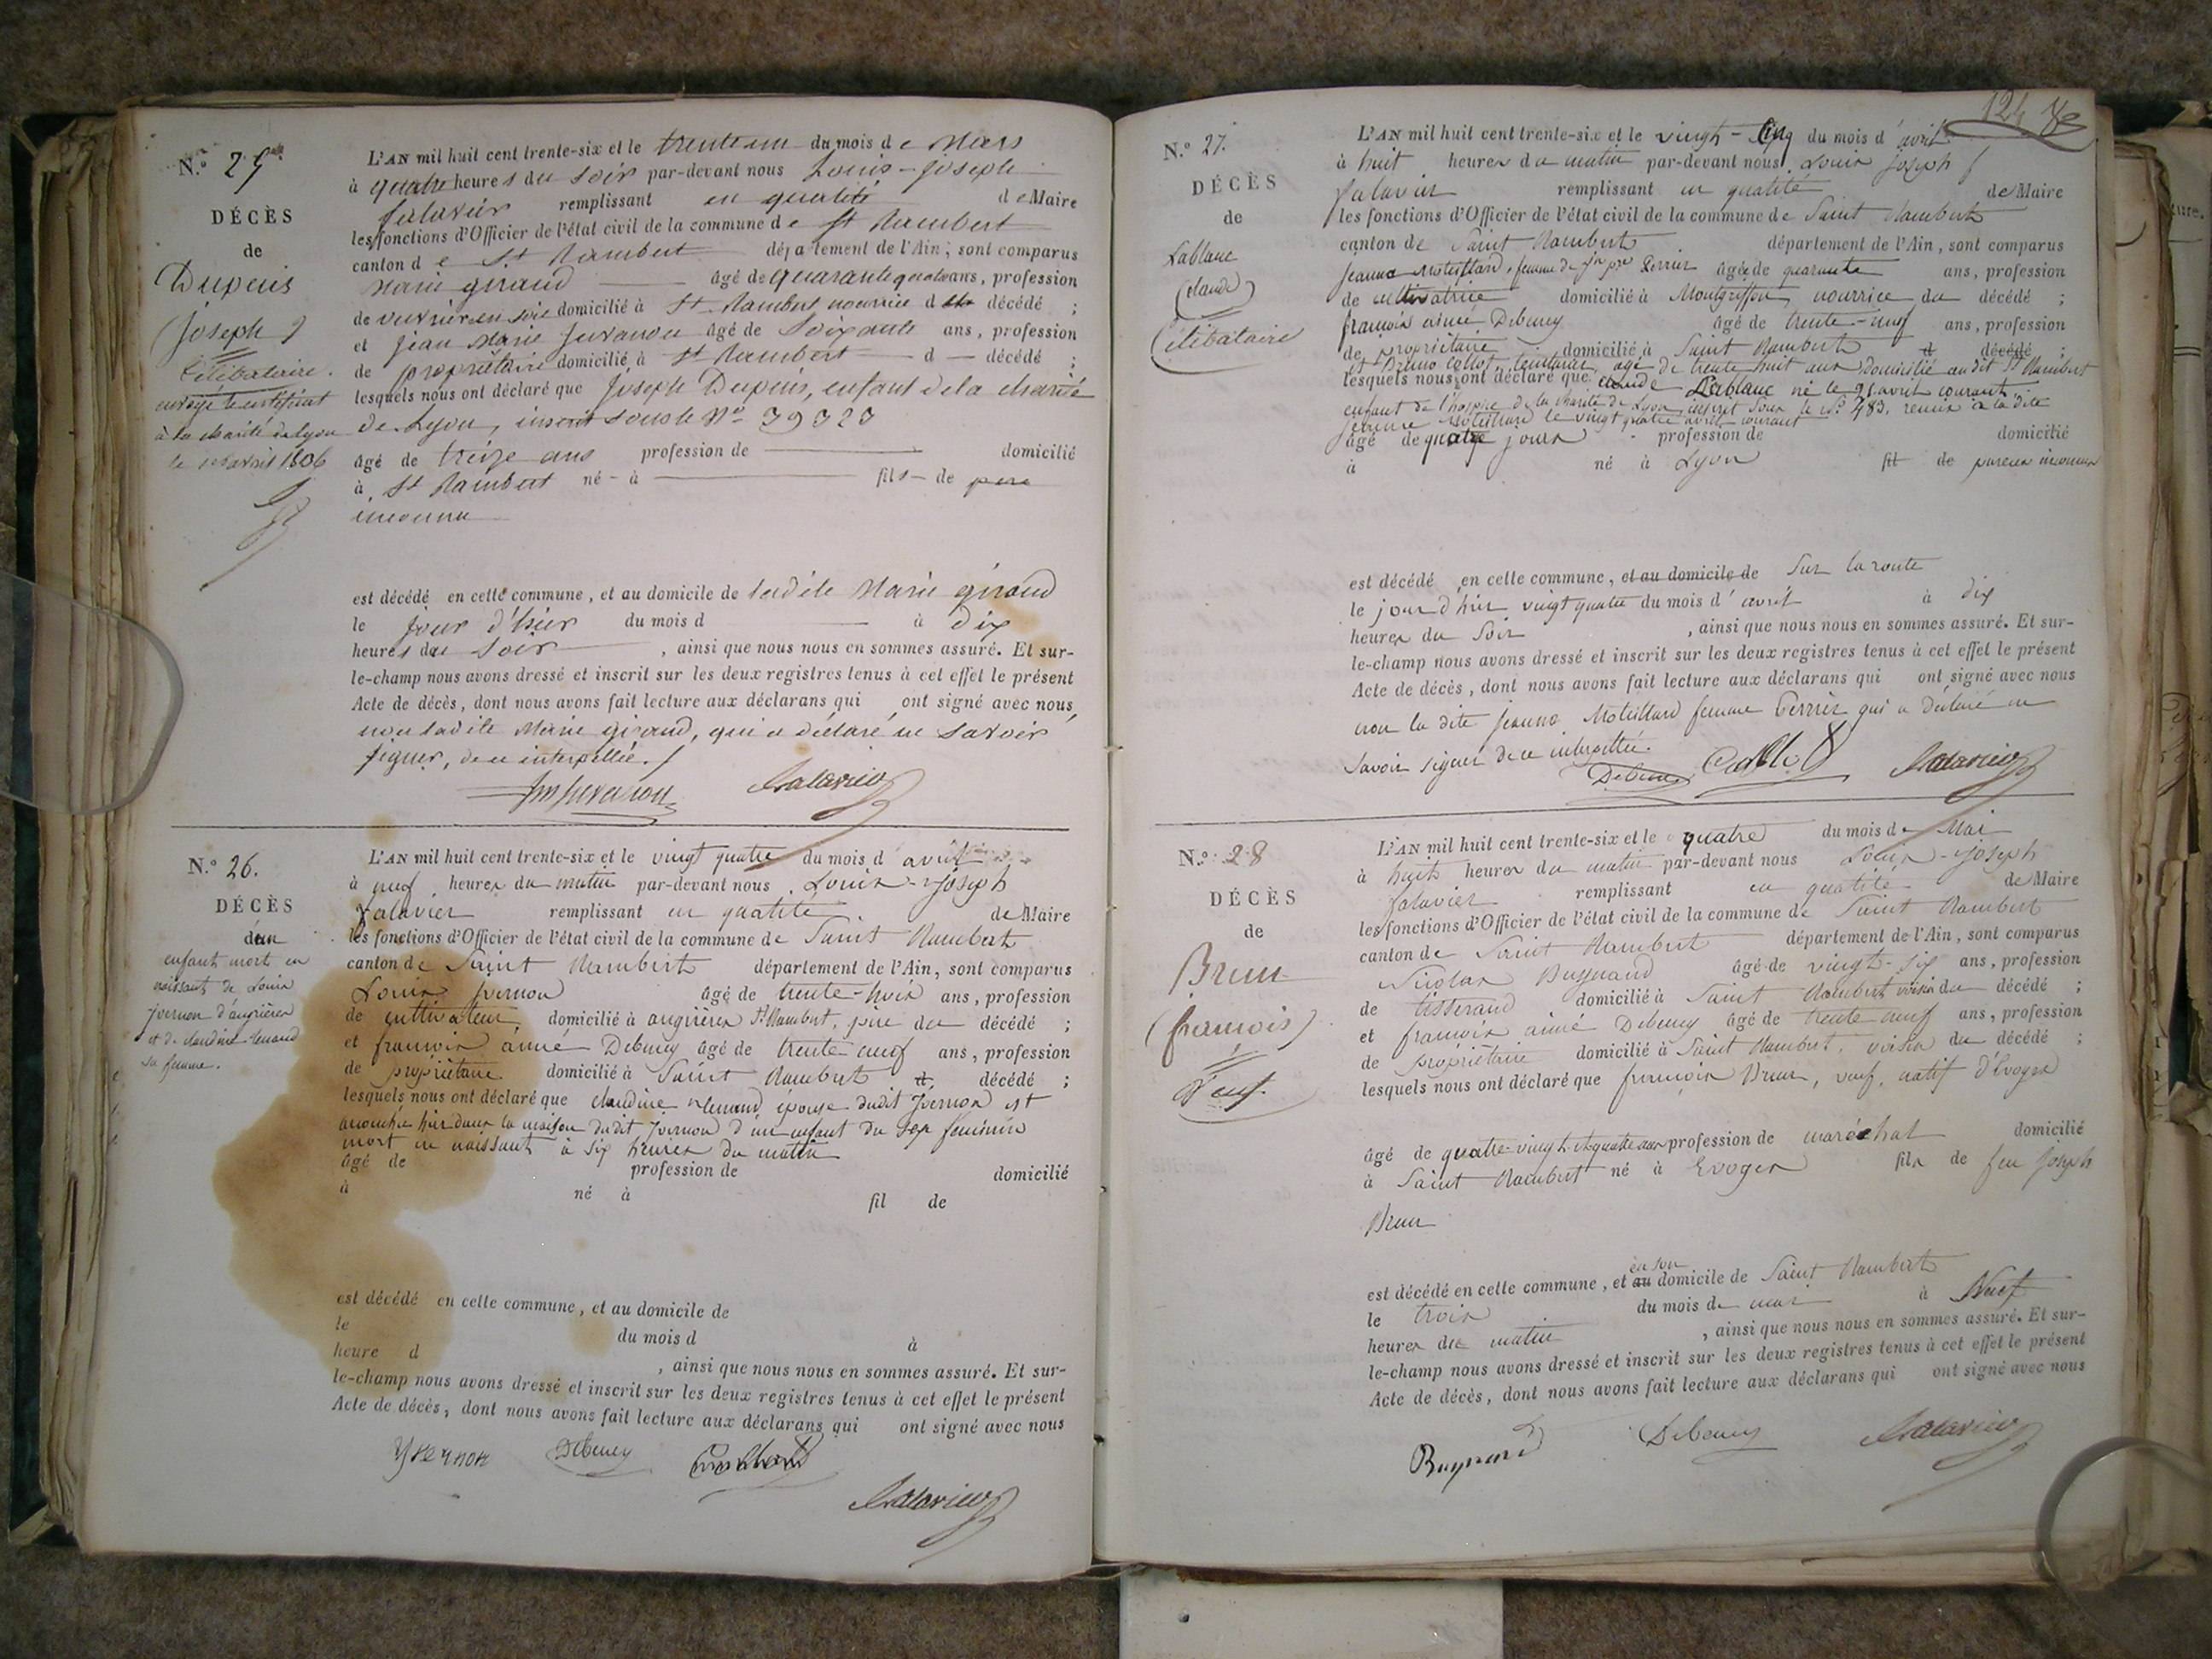 N.º 25.
DÉCÈS
de
Dupuis
(Joseph)
Célibataire.
envoyé le certificat
à la charité de Lyon
le avril 1836
L'AN mil huit cent trente-six et le trente un du mois de Mars
à quatre heures du soir par-devant nous Louis-Joseph
falavier remplissant en qualité de Maire
les fonctions d'Officier de l'état civil de la commune de St Rambert
canton de St Rambert département de l'Ain, sont comparus
Marie giraud âgé de quarante quatre ans, profession
de ouvrière en soie domicilié à St Rambert nourrice d décédé ;
et Jean Marie Juvanon âgé de Soixante ans, profession
de propriétaire domicilié à St Rambert d décédé ;
lesquels nous ont déclaré que Joseph Dupuis, enfant de la charité
de Lyon, inscrit sous le Nº 39323
âgé de treize ans profession de domicilié
à St Rambert né à fils de père
inconnu
est décédé en cette commune, et au domicile de ladite Marie giraud
le jour d'hier du mois d à dix
heures du soir, ainsi que nous nous en sommes assuré. Et sur-
le-champ nous avons dressé et inscrit sur les deux registres tenus à cet effet le présent
Acte de décès, dont nous avons fait lecture aux déclarans qui ont signé avec nous,
non ladite Marie giraud, qui a déclaré ne savoir
signer, de ce interpellée.
Jm Juvanon falavier
N.º 26.
DÉCÈS
d'un
enfant mort en
naissant de Louis
yvernon d'angrières
et de claudine
sa femme.
L'AN mil huit cent trente-six et le vingt quatre du mois d'avril
à neuf heures du matin par-devant nous Louis-Joseph
falavier remplissant en qualité de Maire
les fonctions d'Officier de l'état civil de la commune de Saint Rambert
canton de Saint Rambert département de l'Ain, sont comparus
Louis yvernon âgé de trente-trois ans, profession
de cultivateur domicilié à angrières St Rambert, père du décédé ;
et françois aimé Debeney âgé de trente neuf ans, profession
de propriétaire domicilié à Saint Rambert d décédé ;
lesquels nous ont déclaré que claudine épouse dudit yvernon est
accouchée hier dans la maison dudit yvernon d'un enfant du sexe féminin
mort en naissant à six heures du matin
âgé de profession de domicilié
à né à fil de
est décédé en cette commune, et au domicile de
le du mois d à
heure d , ainsi que nous nous en sommes assuré. Et sur-
le-champ nous avons dressé et inscrit sur les deux registres tenus à cet effet le présent
Acte de décès, dont nous avons fait lecture aux déclarans qui ont signé avec nous
yvernon Debeney
falavier
124
N.º 27.
DÉCÈS
de
Lablanc
(claude)
Célibataire
L'AN mil huit cent trente-six et le vingt-cinq du mois d'avril
à huit heures du matin par-devant nous Louis Joseph
falavier remplissant en qualité de Maire
les fonctions d'Officier de l'état civil de la commune de Saint Rambert
canton de Saint Rambert département de l'Ain, sont comparus
jeanne Moteillard, femme de jn pre Perrier âgée de quarante ans, profession
de cultivatrice domicilié à Montgriffon, nourrice du décédé ;
françois aimé Debeney âgé de trente-neuf ans, profession
de propriétaire domicilié à Saint Rambert d décédé ;
et Bruno Collot, teinturier, âgé de trente huit ans domicilié audit St Rambert
lesquels nous ont déclaré que claude Lablanc né le 21 avril courant
enfant de l'hospice de la charité de Lyon, inscrit sous le Nº 483, remis à la dite
jeanne Moteillard le vingt quatre avril courant
âgé de quatre jours profession de domicilié
à né à Lyon fil de parens inconnus
est décédé en cette commune, et au domicile de Sur la route
le jour d'hier vingt quatre du mois d'avril à dix
heures du Soir, ainsi que nous nous en sommes assuré. Et sur-
le-champ nous avons dressé et inscrit sur les deux registres tenus à cet effet le présent
Acte de décès, dont nous avons fait lecture aux déclarans qui ont signé avec nous
non la dite jeanne Moteillard femme Perrier qui a déclaré ne
savoir signer de ce interpellée.
Debeney Collot falavier
N.º 28
DÉCÈS
de
Brun
(françois)
Veuf.
L'AN mil huit cent trente-six et le quatre du mois de Mai
à huit heures du matin par-devant nous Louis-Joseph
falavier remplissant en qualité de Maire
les fonctions d'Officier de l'état civil de la commune de Saint Rambert
canton de Saint Rambert département de l'Ain, sont comparus
Nicolas Buynand âgé de vingt-six ans, profession
de tisserand domicilié à Saint Rambert voisin du décédé ;
et françois aimé Debeney âgé de trente neuf ans, profession
de propriétaire domicilié à Saint Rambert, voisin du décédé ;
lesquels nous ont déclaré que françois Brun, veuf, natif d'Evoges
âgé de quatre-vingt-quatre ans profession de maréchal domicilié
à Saint Rambert né à Evoges fils de feu Joseph
Brun
en son
est décédé en cette commune, et au domicile de Saint Rambert
le trois du mois de mai à Neuf
heures du matin, ainsi que nous nous en sommes assuré. Et sur-
le-champ nous avons dressé et inscrit sur les deux registres tenus à cet effet le présent
Acte de décès, dont nous avons fait lecture aux déclarans qui ont signé avec nous
Buynand Debeney falavier